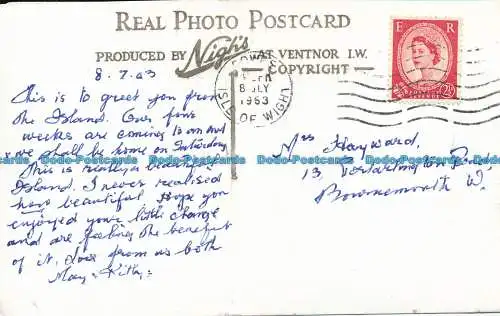 REAL PHOTO POSTCARD
PRODUCED BY Nigh's AT VENTNOR I.W.
COPYRIGHT
E R
2½D
COWES
8 JLY
1963
ISLE OF WIGHT
8.7.63
This is to greet you from
the Island. Our few
weeks are coming to an end
we shall be home on Saturday
This is really a beautiful
Island. I never realised
how beautiful Hope you
enjoyed your little change
and are feeling the benefit
of it. Love from us both
May & Kitty
Mrs Hayward,
13,
Bournemouth W.